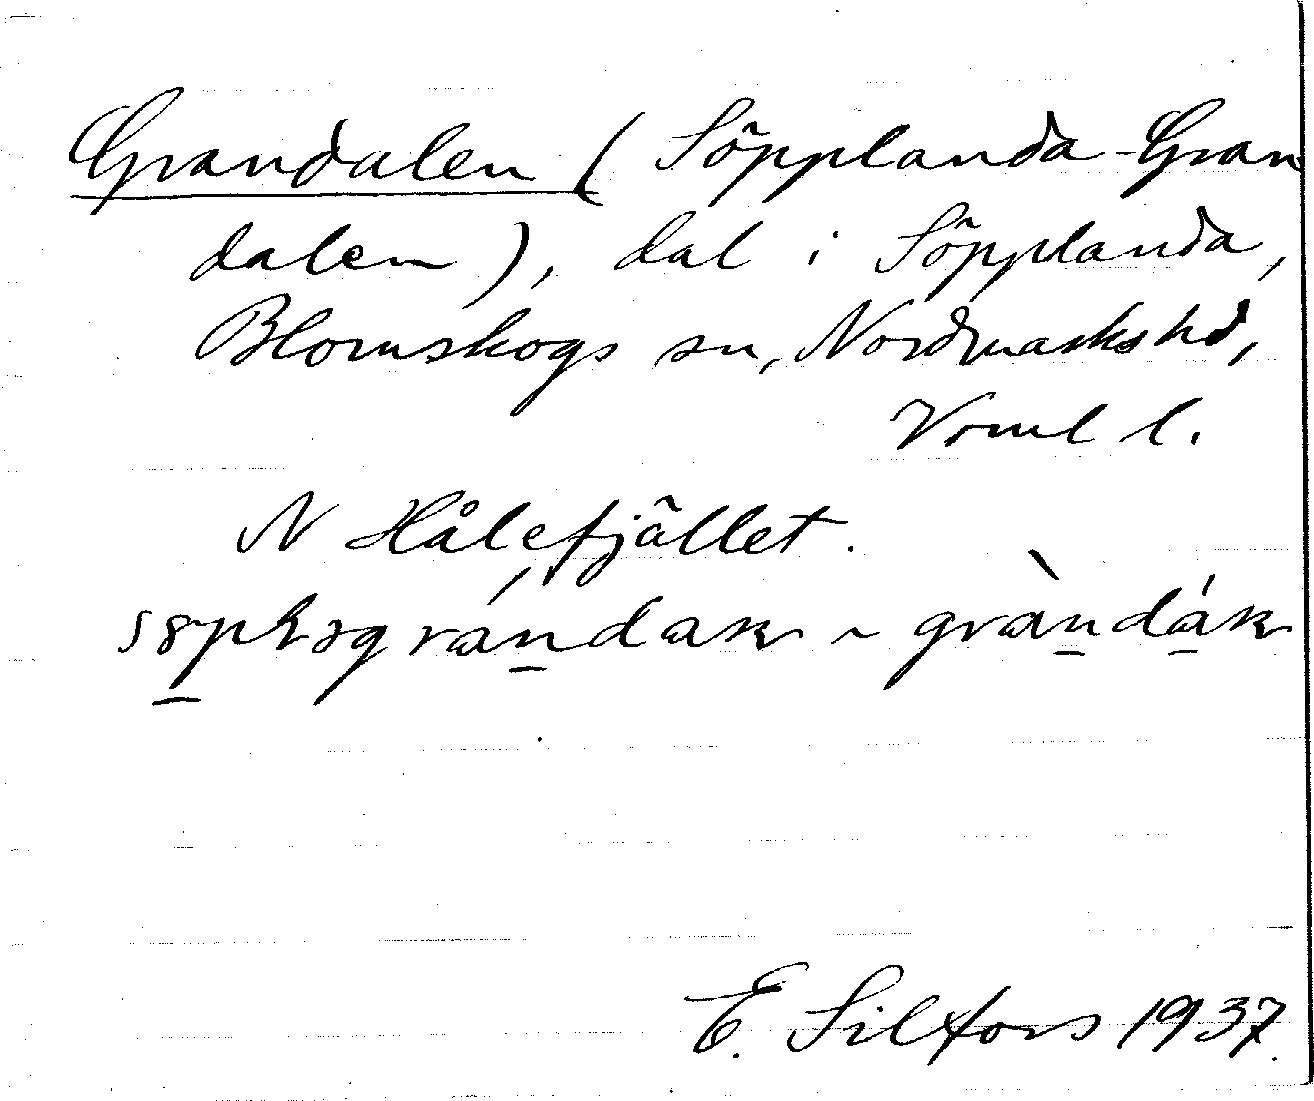 Grandalen (Söpplanda-Gran
dalen), dal i Söpplanda,
Blomskogs sn, Nordmarks hd,
Vrml l.
N Hålefjället.
E. Silfors 1937.